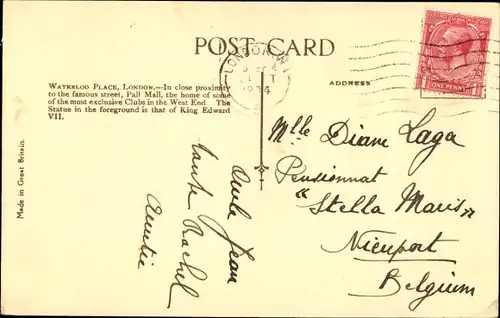 POST CARD
LONDON W.
1934
ONE PENNY
WATERLOO PLACE, LONDON.—In close proximity
to the famous street, Pall Mall, the home of some
of the most exclusive Clubs in the West End. The
Statue in the foreground is that of King Edward
VII.
ADDRESS
Mlle Diane Laga
Pensionnat
"Stella Maris"
Nieuport
Belgium
Oncle Jean
tante Rachel
Auntie
Made in Great Britain.